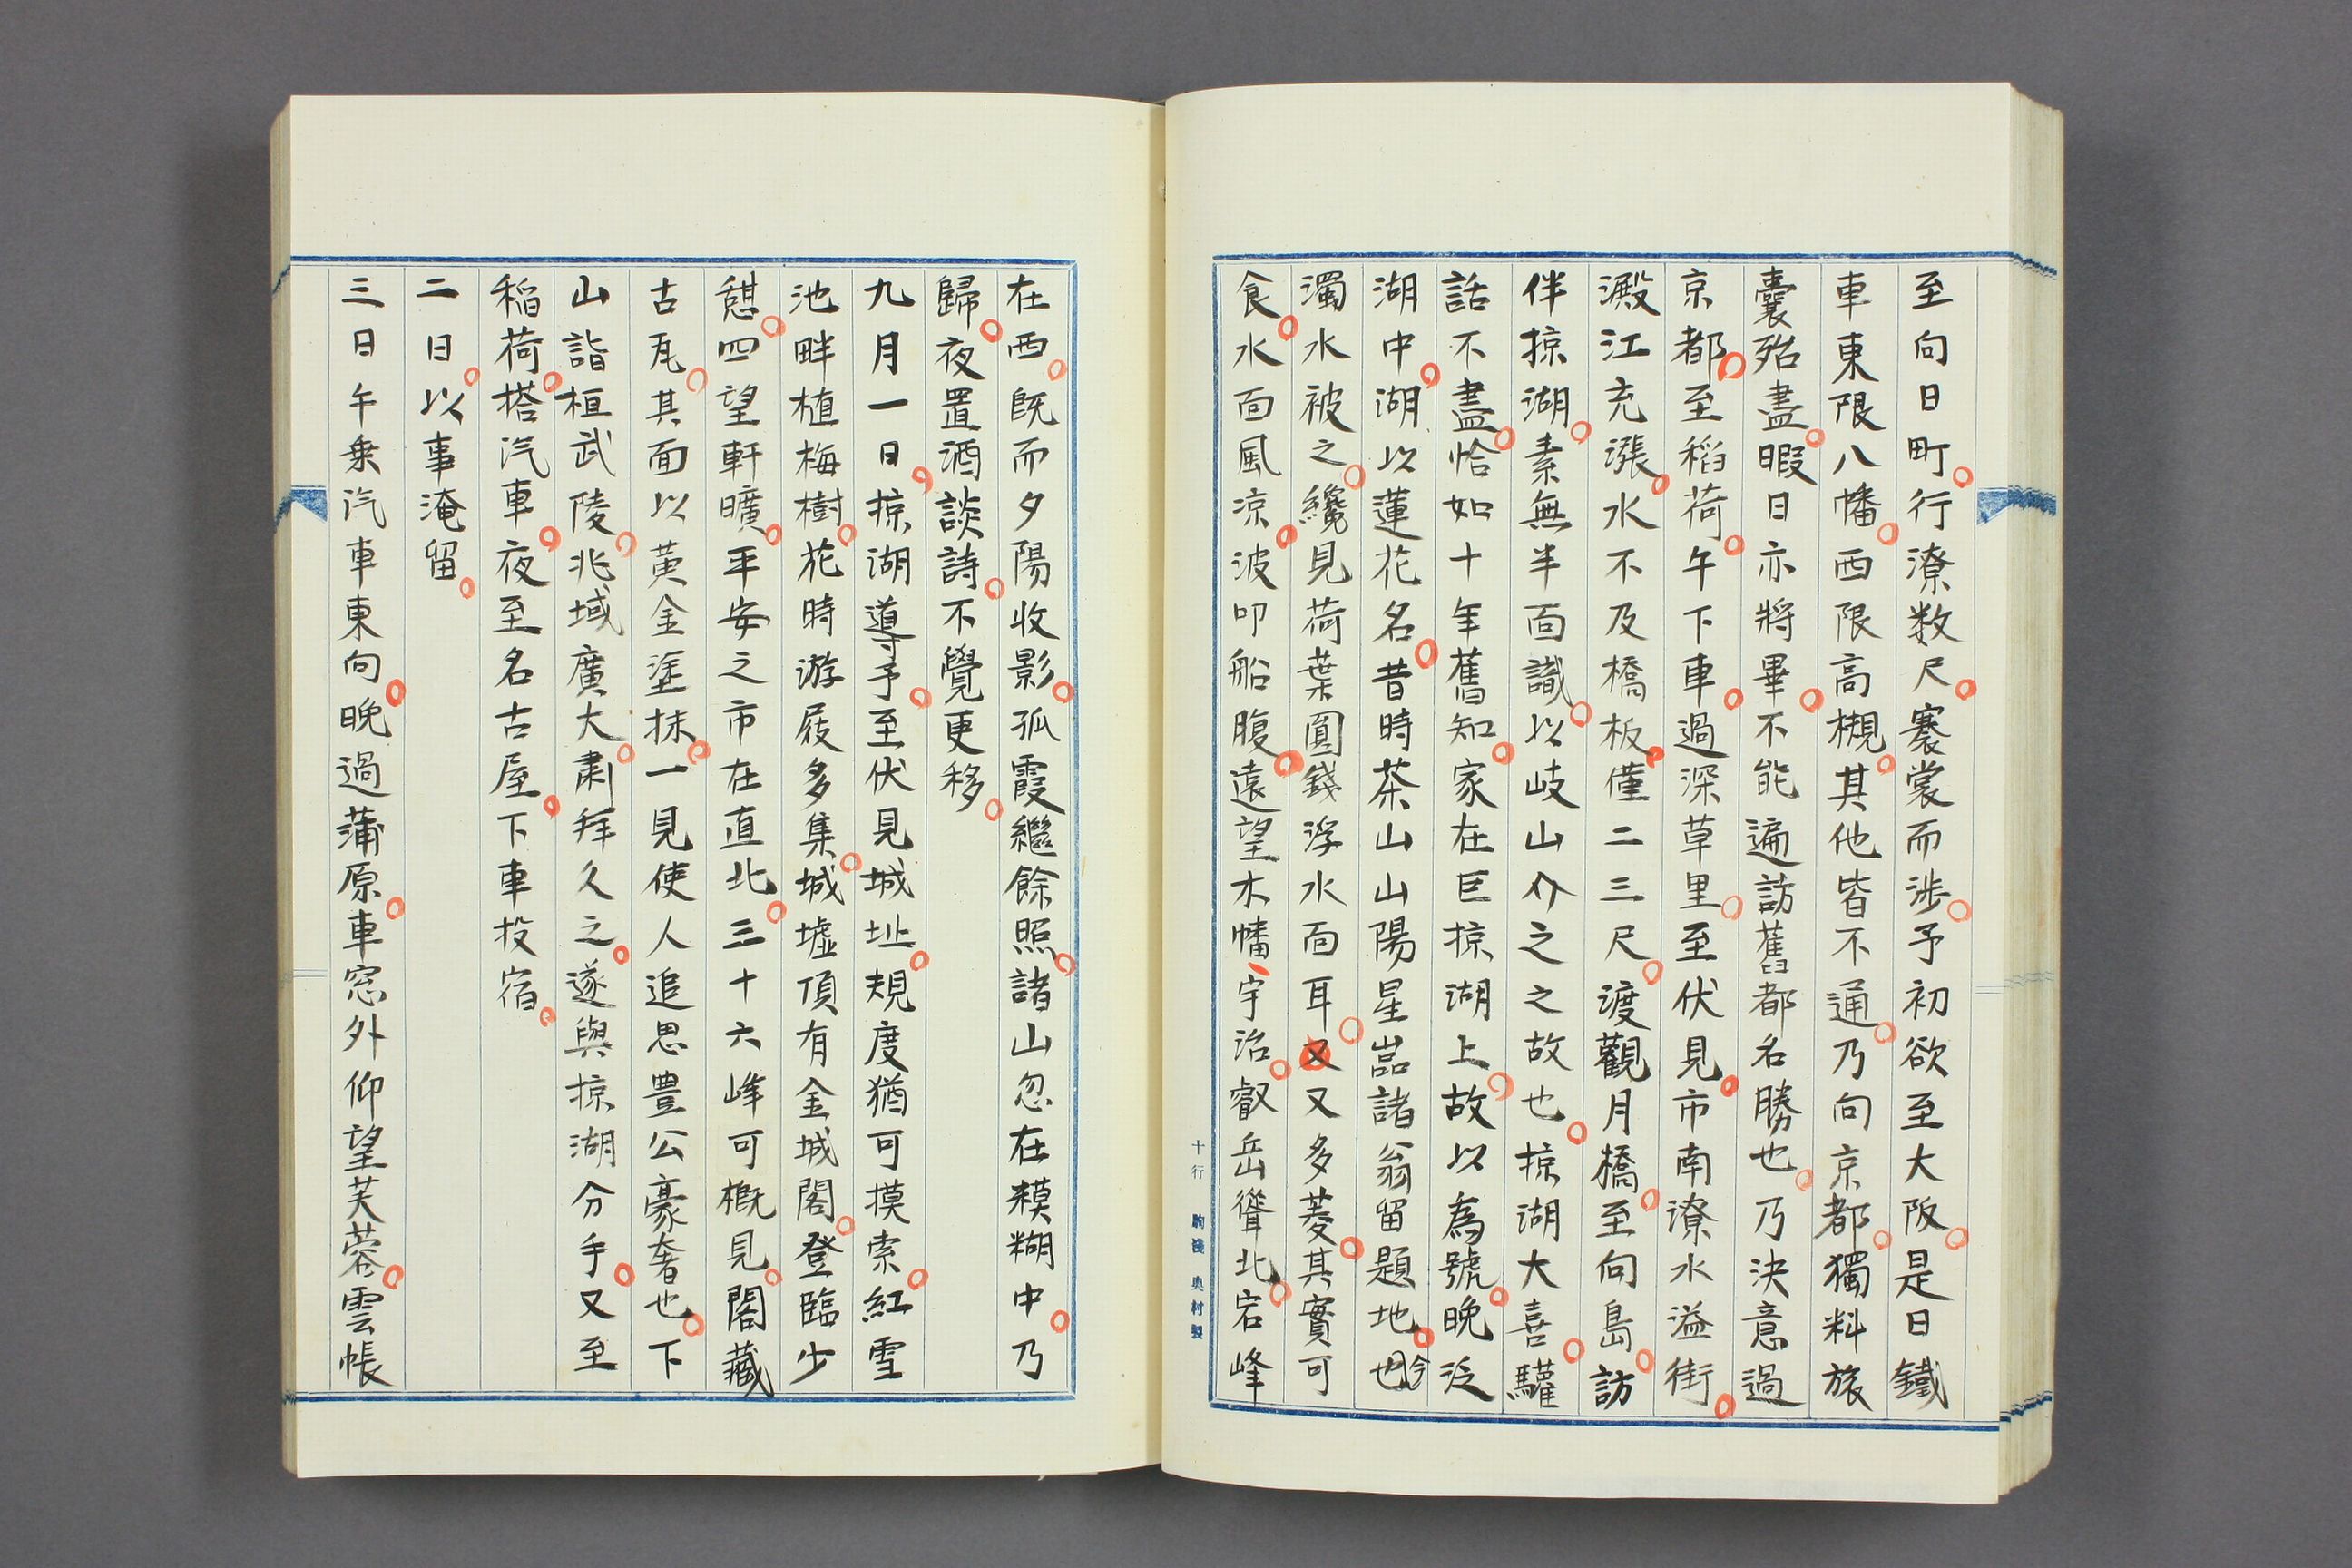 至向日町。行潦数尺。褰裳而渉。予初欲至大阪。是日鐵
車東限八幡。西限高槻。其他皆不通。乃向京都。獨料旅
囊殆盡。暇日亦將畢。不能遍訪舊都名勝也。乃決意過
京都。至稻荷。午下車。過深草里。至伏見。市南潦水溢街。
澱江充漲。水不及橋板。僅二三尺。渡觀月橋。至向島。訪
伴掠湖。素無半面識。以岐山介之之故也。掠湖大喜。驩
話不盡。恰如十年舊知。家在巨掠湖上。故以為號。晩泛
湖中。湖以蓮花名。昔時茶山山陽星巖諸翁留題地也。今
濁水被之。纔見荷葉圓錢浮水面耳。又又多菱。其實可
食。水面風凉。波叩船腹。遠望木幡、宇治。叡岳聳北。宕峰
十行 奥村製
在西。既而夕陽收影。孤霞繼餘照。諸山忽在糢糊中。乃
歸。夜置酒談詩。不覺更移。
九月一日。掠湖導予。至伏見城址。規度猶可摸索。紅雪
池畔植梅樹。花時游屐多集。城墟頂有金城閣。登臨少
憩。四望軒曠。平安之市在直北。三十六峰可概見。閣藏
古瓦。其面以黄金塗抹。一見使人追思豊公豪奢也。下
山詣桓武陵。兆域廣大。肅拜久之。遂與掠湖分手。又至
稲荷。搭汽車。夜至名古屋。下車投宿。
二日。以事淹留。
三日午乗汽車東向。晩過蒲原。車窓外仰望芙蓉。雲帳